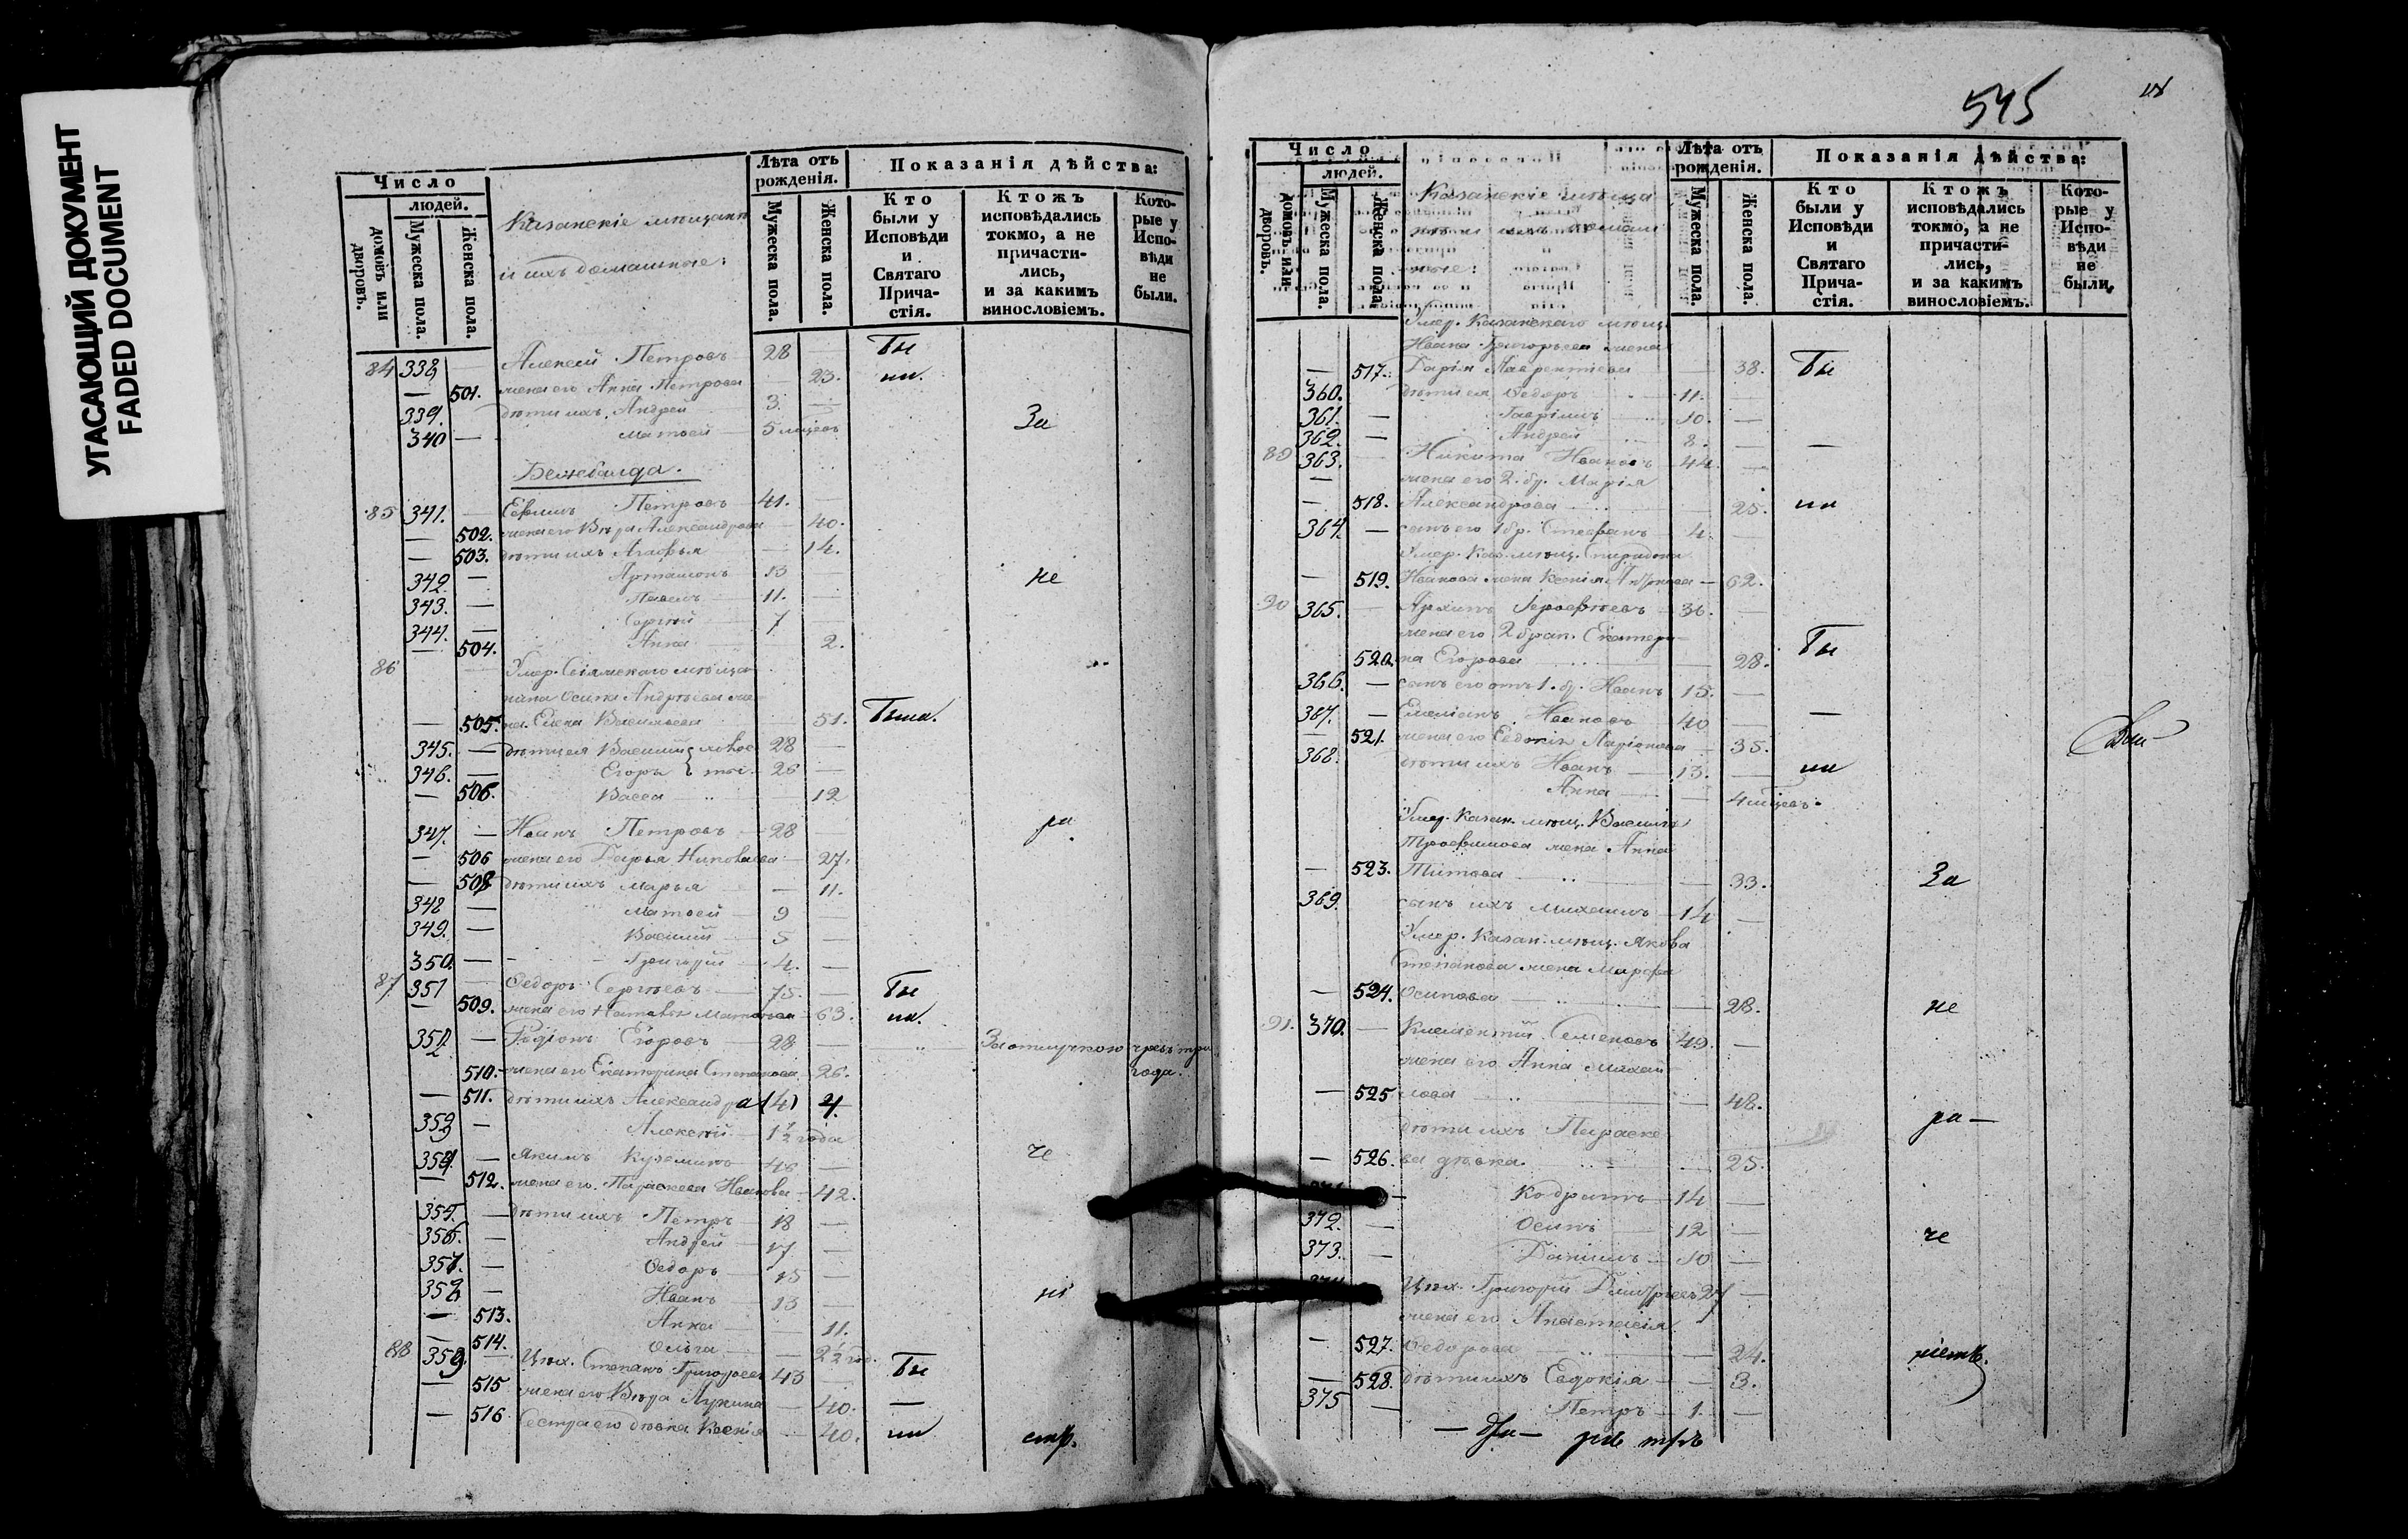 УГАСАЮЩИЙ ДОКУМЕНТ
FADED DOCUMENT
Число
людей.
домовъ или дворовъ.
Мужеска пола.
Женска пола.
Казанскіе мѣщане
и ихъ домашные:
Лѣта отъ рожденія.
Мужеска пола.
Женска пола.
Показанія дѣйства:
Кто были у Исповѣди и Святаго Причастія.
Ктожъ исповѣдались токмо, а не причастились, и за какимъ винословіемъ.
Которые у Исповѣди не были.
84 338 — Алексей Петровъ 28 — Бы
— 501. жена его Анна Петрова — 23. ли.
339. дѣти ихъ Андрей 3. —
340 — Матвей 5 мѣцевъ За
Бежбалда.
85 341. — Ефимъ Петровъ 41. —
— 502. жена его Вѣра Александрова — 40.
— 503. дѣти ихъ Агафья — 14.
342. — Артамонъ 13 — не
343. — Павелъ 11. —
344. — Сергій 7 —
— 504. Анна 2.
86 Умер. мѣща
нина Осипа Андрѣева же
— 505. на Елена Васильева — 51. Была.
345. — дѣти ея Василий } холос 28 —
346. — Егоръ } тые. 26 —
— 506. Васса — 12
347. — Иванъ Петровъ 28 — ра
— 506 жена его Дарья Николаева — 27.
— 508 дѣти ихъ Марья — 11.
348 — Матвей 9 —
349. — Василий 5 —
350. — Григорій 4. —
87 351 Ѳедоръ Сергѣевъ 75. — Бы
— 509. жена его Наталья Матвѣева 63. ли.
352 — Родіонъ Егоровъ 28 — За отлучкою чрезъ три
года.
510. жена его Екатерина Степанова 26.
— 511. дѣти ихъ Александра (4) 4.
353 — Алексѣй 1½ года
354. — Якимъ Кузминъ 46 — че
— 512. жена его Параскева Иванова 42.
355. — дѣти ихъ Петръ 18 —
356. — Андрей 17 —
357. — Ѳедоръ 15 —
358. — Иванъ 13 — ні
— 513. Анна — 11.
— 514. Ольга — 2½ год.
88 359. — Цех. Степанъ Григорьевъ 43 Бы
— 515 жена его Вѣра Лукина — 40. —
— 516 Сестра его дѣвка Ксенія — 40. ли стр.
545
Число
людей.
домовъ или дворовъ.
Мужеска пола.
Женска пола.
Казанскіе мѣща
не и ихъ домаш
ные:
Лѣта отъ рожденія.
Мужеска пола.
Женска пола.
Показанія дѣйства:
Кто были у Исповѣди и Святаго Причастія.
Ктожъ исповѣдались токмо, а не причастились, и за какимъ винословіемъ.
Которые у Исповѣди не были.
Умер. Казанскаго мѣщ.
Ивана Григорьева жена
— 517. Дарія Лаврентіева — 38. Бы
360. дѣти ея Ѳедоръ 11. —
361. — Гавріилъ 10. —
362. — Андрей 8. — —
89 363. — Никита Ивановъ 44 —
— жена его 2. бр. Марія
— 518. Александрова — 25. ли
364. — сынъ его 1 бр. Стефанъ 4. —
Умер. Каз. мѣщ. Спиридона
— 519. Иванова жена Ксенія — 62.
90 365. — Архипъ Іерофѣевъ 36. —
жена его 2 брак. Екатери
520. на Егорова — 28. Бы
366. — сынъ его отъ 1. бр. Иванъ 15. —
367. — Емеліанъ Ивановъ 40 — —
— 521. жена его Евдокія Ларіонова 35.
368. дѣти ихъ Иванъ 13. — ли
Анна — 4 мѣцевъ.
Умер. Казан. мѣщ. Василія
Трофимова жена Анна
— 523. Титова — 33. За
369. сынъ ихъ Михаилъ 14 —
Умер. Казан. мѣщ. Якова
Степанова жена Марфа
— 524. Осипова — 28. не
91. 370. — Климентій Семеновъ 49. —
жена его Анна Михай
— 525 лова — 48.
дѣти ихъ Параске ра —
— 526. ва дѣвка. — 25.
— Кодратъ 14 —
372. — Осипъ 12 — че
373. — Данилъ 10 —
Цех. Григорій Дмитріевъ 27 —
жена его Анастасія
— 527. Ѳедорова — 24. ніемъ.
— 528. дѣти ихъ Евдокія — 3.
375 — Петръ 1. —